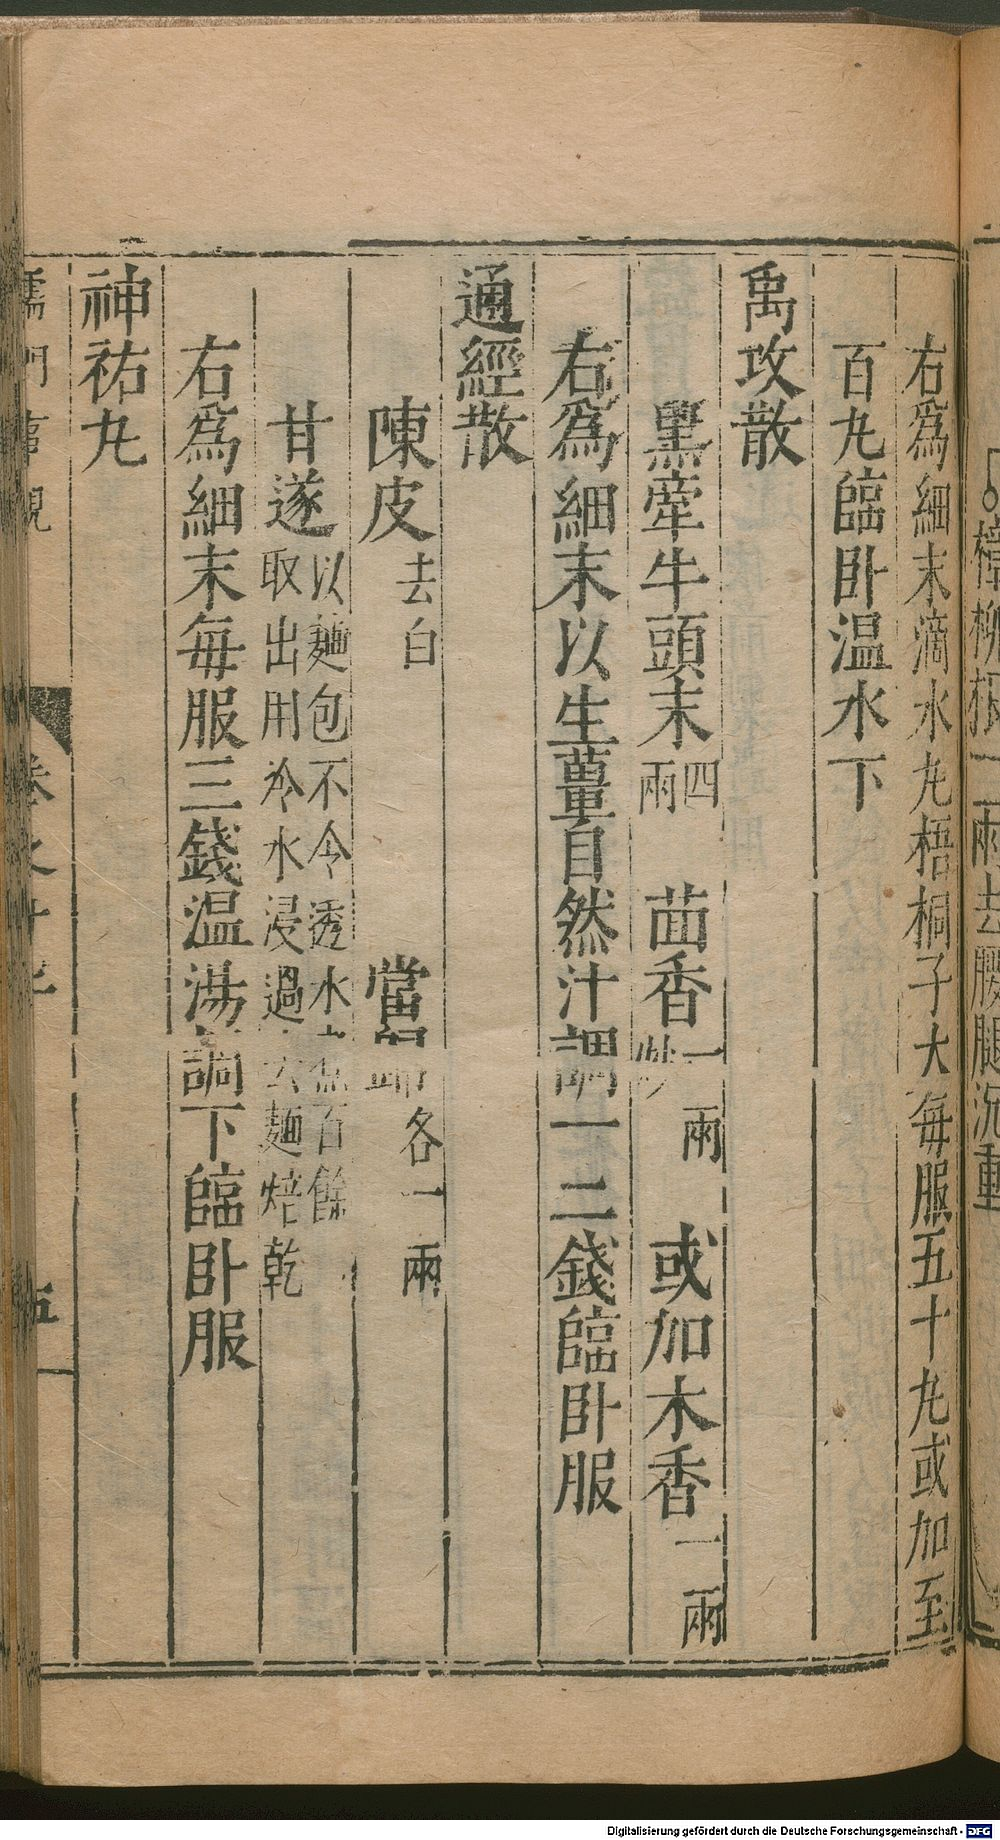 樟柳根一兩去腰腿沉重
右為細末滴水丸梧桐子大每服五十丸或加至
百丸臨卧温水下
禹攻散
黑牽牛頭末四兩 茴香一兩炒 或加木香一兩
右為細末以生薑自然汁調一二錢臨卧服
通經散
陳皮去白 當歸各一兩
甘遂以麵包不令透水煑百餘
取出用冷水浸過去麵焙乾
右為細末每服三錢温湯調下臨卧服
神祐丸
儒門事親 卷之十 五
Digitalisierung gefördert durch die Deutsche Forschungsgemeinschaft - DFG